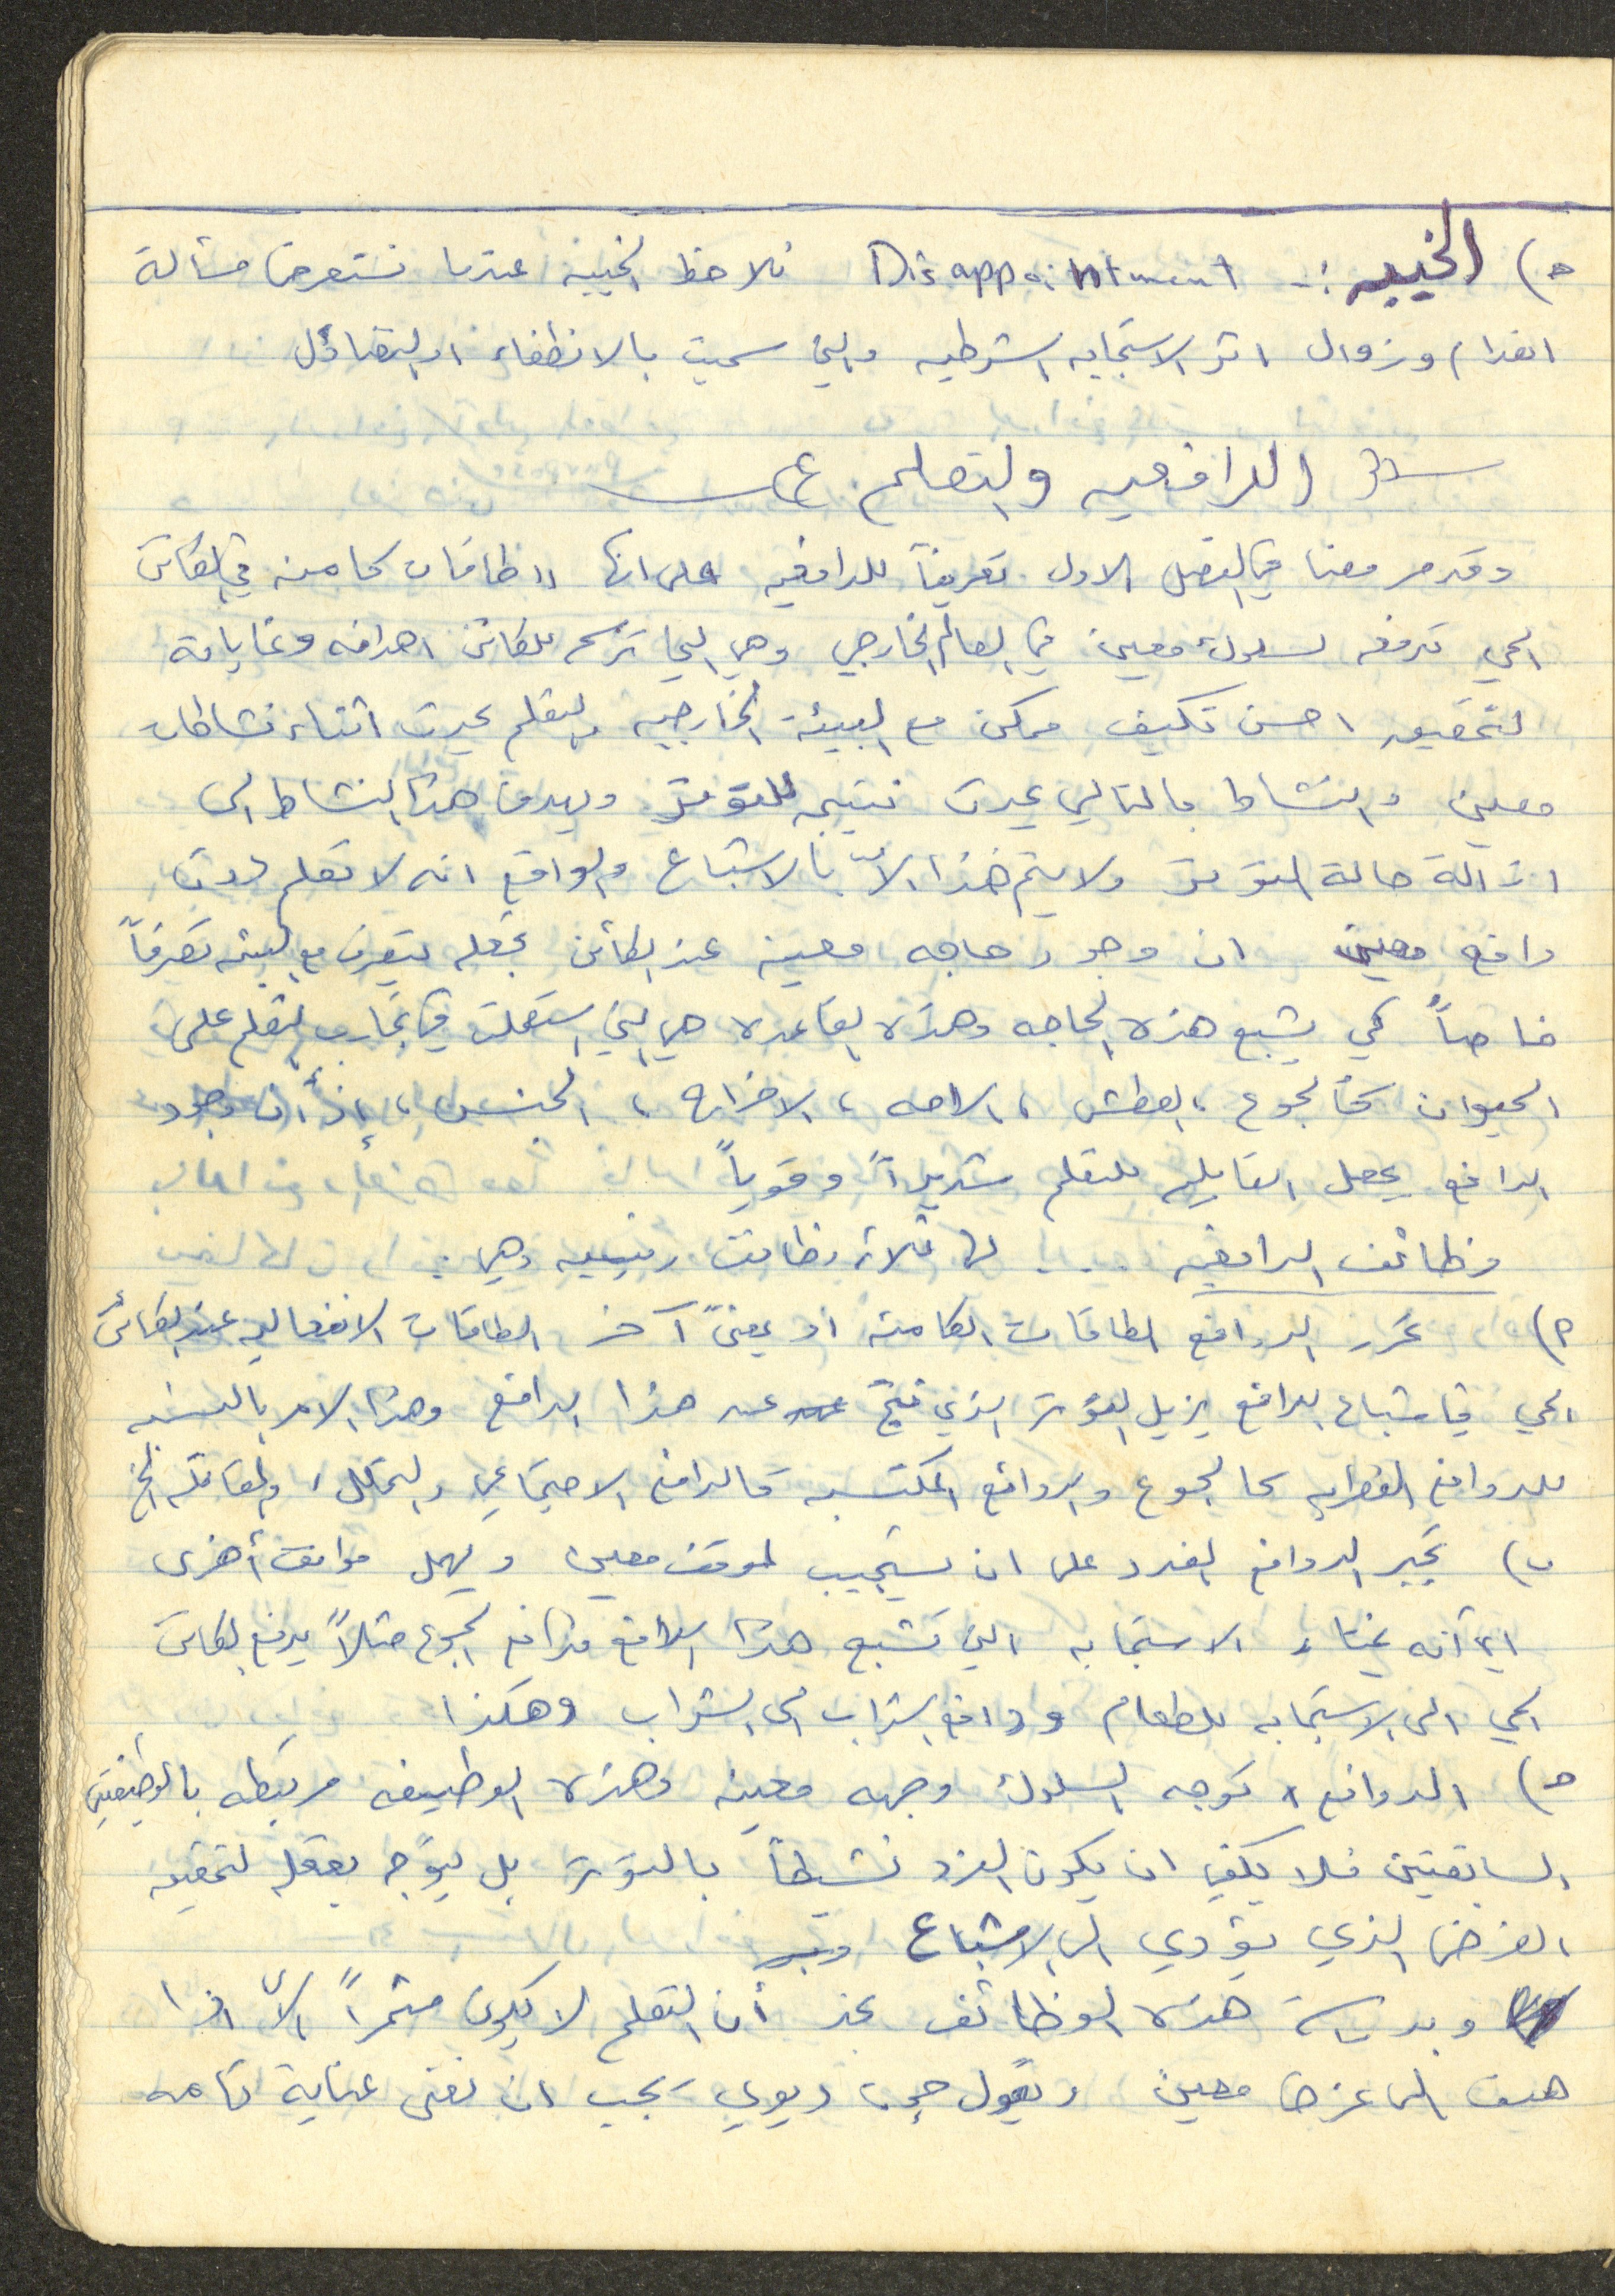 ح) الخيبه :- Disappointment نلاحظ الخيبه عندما نستعرض مسألة
انعدام وزوال اثر الاستجابه الشرطيه والتي سميت بالانطفاء او التضاؤل
الدافعيه والتعلم
وقد مر معنا في الفصل الاول تعريفاً للدافعيه على انها " طاقات كامنه في الكائن
الحي تدفعه لسلوك معين في العالم الخارجي وهي التي ترسم للكائن اهدافه وغاياته
لتحقيق احسن تكيف ممكن مع البيئة الخارجيه والتعلم يحدث اثناء نشاطات
معين والنشاط بالتالي يحدث نتيجه للتوتر ويهدف هذا النشاط الى
ازالة حالة التوتر ولا يتم هذا الا بالاشباع والواقع انه لا تعلم بدون
دافع معين ان وجود حاجه معينه عند الكائن تجعله يتصرف مع البيئه تصرفاً
خاصاً كي يشبع هذه الحاجه وهذه القاعده هي التي استغلت في تجارب التعلم على
الحيوان كالجوع ، العطش ، الراحه ، الاخراج ، الجنس ، إذ أن وجود
الدافع يجعل القابليه للتعلم شديداً وقوياً
وظائف الدافعيه لها ثلاث وظائف رئيسيه وهي :
أ) تحرر الدوافع الطاقات الكامنه او بمعنىً آخر الطاقات الانفعاليه عند الكائن
الحي فاشباع الدافع يزيل التوتر الذي نتج عن هذا الدافع وهذا الامر بالنسبه
للدوافع الفطريه كالجوع والدوافع المكتسبه كالدافع الاجتماعي والتملك، والمقاتله الخ
ب) تجبر الدوافع الفرد على ان يستجيب لموقف معين ويهمل مواقف أخرى
اي أنه يختار الاستجابه التي تشبع هذا الدافع فدافع الجوع مثلاً يدفع الكائن
الحي الى الاستجابه للطعام ودافع الشراب الى الشراب وهكذا
ح) الدوافع توجه السلوك وجهه معينه وهذه الوظيفه مرتبطه بالوظيفتين
السابقتين فلا يكفي ان يكون الفرد نشيطاً بالتوتر بل يوجه بعقله لتحقيق
الغرض الذي يؤدي الى الاشباع
وبدراسة هذه الوظائف نجد أن التعلم لا يكون مثمراً الاّ اذا
هدف الى غرض معين ويقول جون ديوي يجب ان نعنى عناية تامه